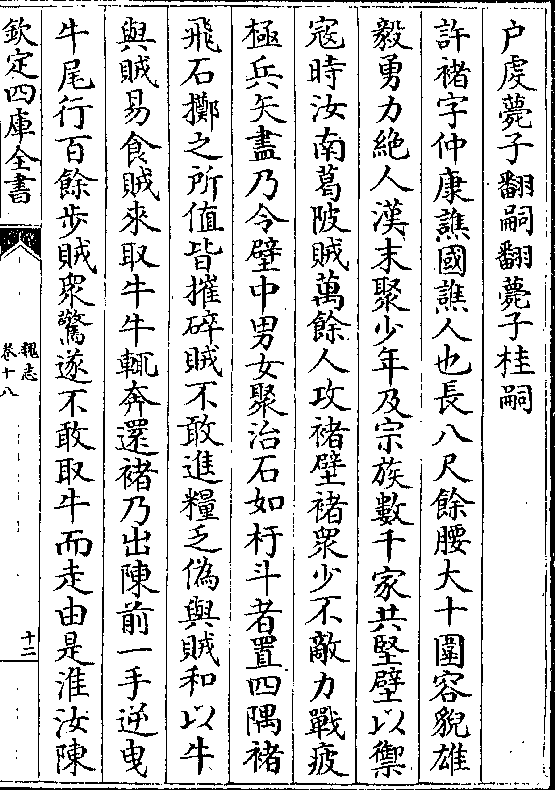 户虔薨子翻嗣翻薨子桂嗣
許褚字仲康譙國譙人也長八尺餘腰大十圍容貌雄
毅勇力絶人漢末聚少年及宗族數千家共堅壁以禦
宼時汝南葛陂賊萬餘人攻褚壁褚衆少不敵力戰疲
極兵矢盡乃令壁中男女聚治石如杅斗者置四隅褚
飛石擲之所值皆摧碎賊不敢進糧乏偽與賊和以牛
與賊易食賊來取牛牛輒奔還褚乃出陳前一手逆曵
牛尾行百餘步賊衆驚遂不敢取牛而走由是淮汝陳
欽定四庫全書
魏志
卷十八
十二